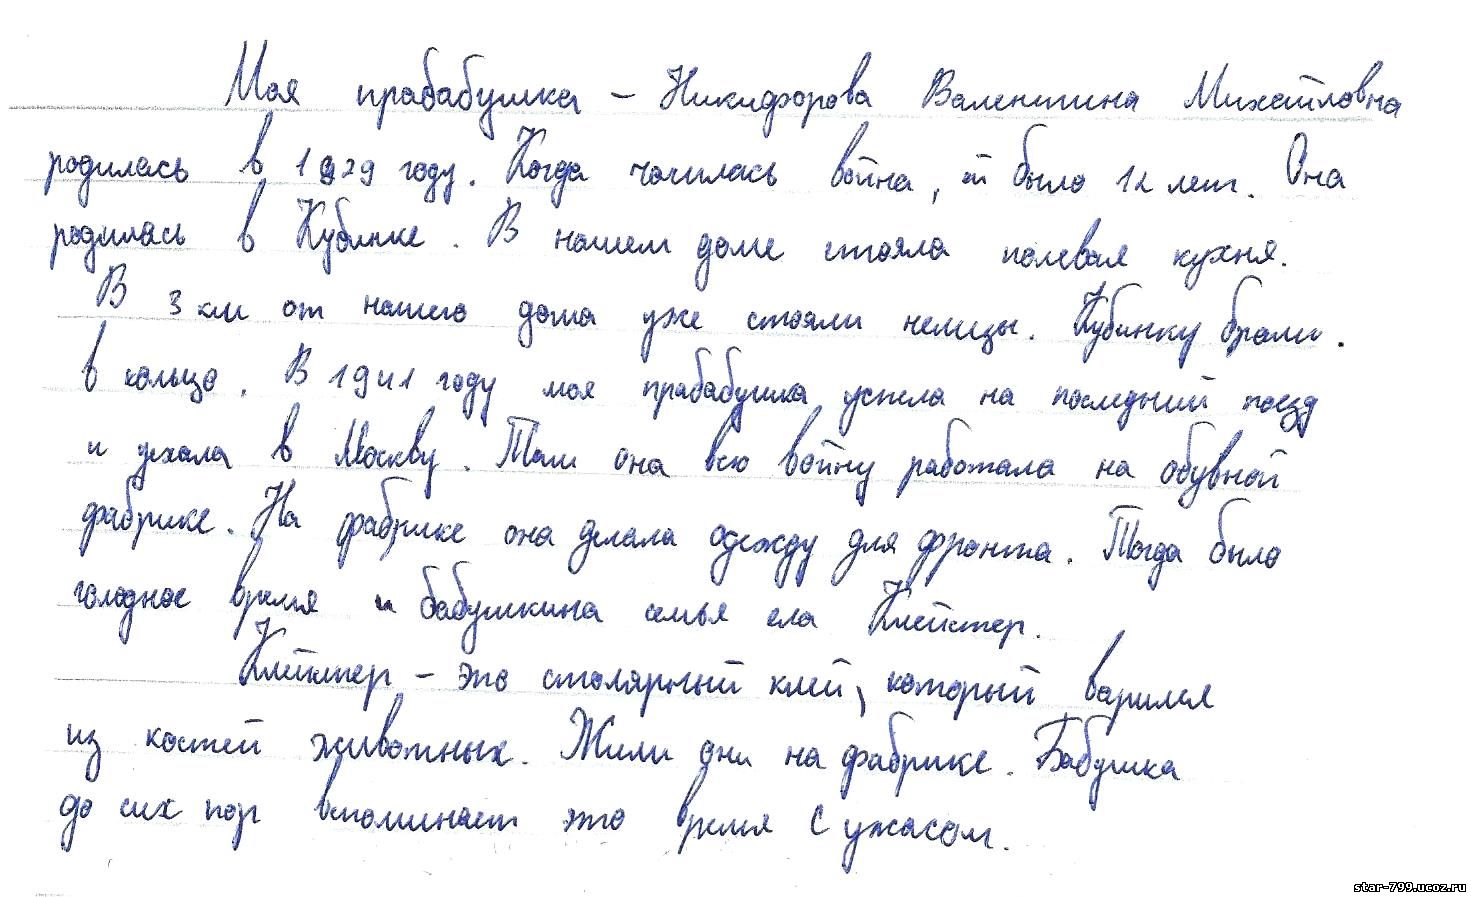 Моя прабабушка – Никифорова Валентина Михайловна
родилась в 1929 году. Когда началась война, ей было 12 лет. Она
родилась в Кубинке. В нашем доме стояла полевая кухня.
В 3 км от нашего дома уже стояли немцы. Кубинку брали
в кольцо. В 1941 году моя прабабушка успела на последний поезд
и уехала в Москву. Там она всю войну работала на обувной
фабрике. На фабрике она делала одежду для фронта. Тогда было
голодное время и бабушкина семья ела Клейстер.
Клейстер – это столярный клей, который варился
из костей животных. Жили они на фабрике. Бабушка
до сих пор вспоминает это время с ужасом.
star-799.ucoz.ru